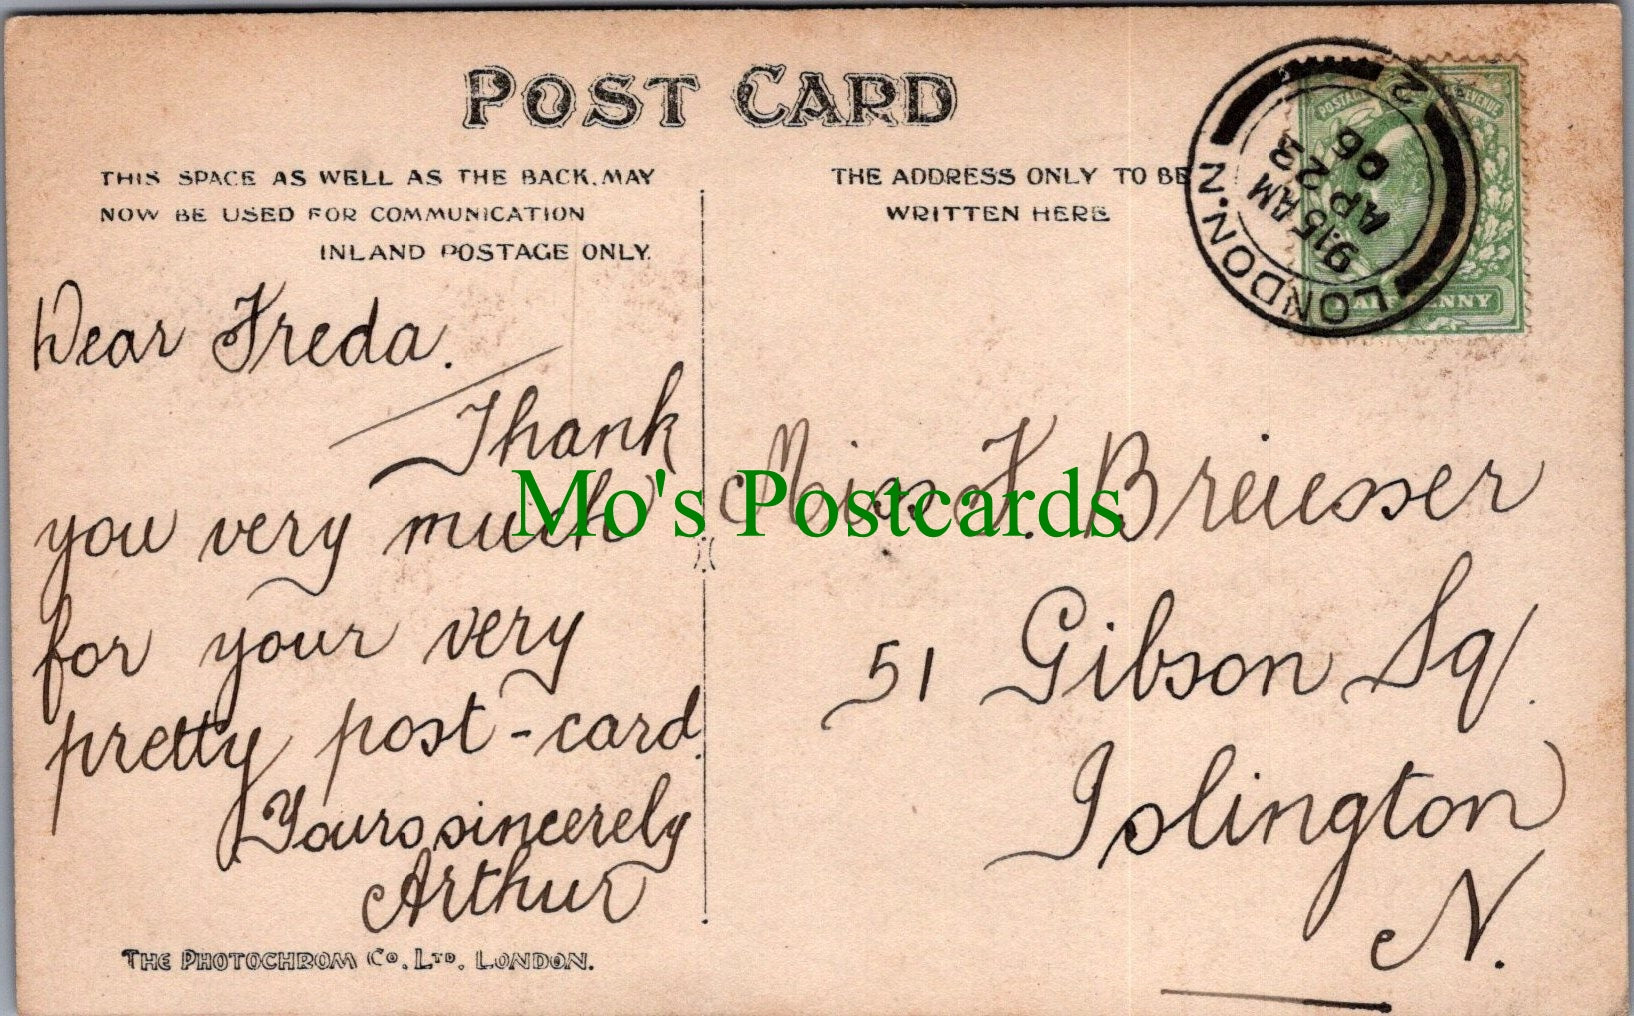 POST CARD
THIS SPACE AS WELL AS THE BACK, MAY
NOW BE USED FOR COMMUNICATION
INLAND POSTAGE ONLY.
THE ADDRESS ONLY TO BE
WRITTEN HERE
LONDON.N
2
9.15 AM
AP 22
06
POSTAGE
REVENUE
HALF PENNY
Dear Freda.
Thank
you very much
for your very
pretty post-card.
Yours sincerely
Arthur
Mo's Postcards
Miss F. Breusser
51 Gibson Sq.
Islington
N.
THE PHOTOCHROM Co. LTD. LONDON.